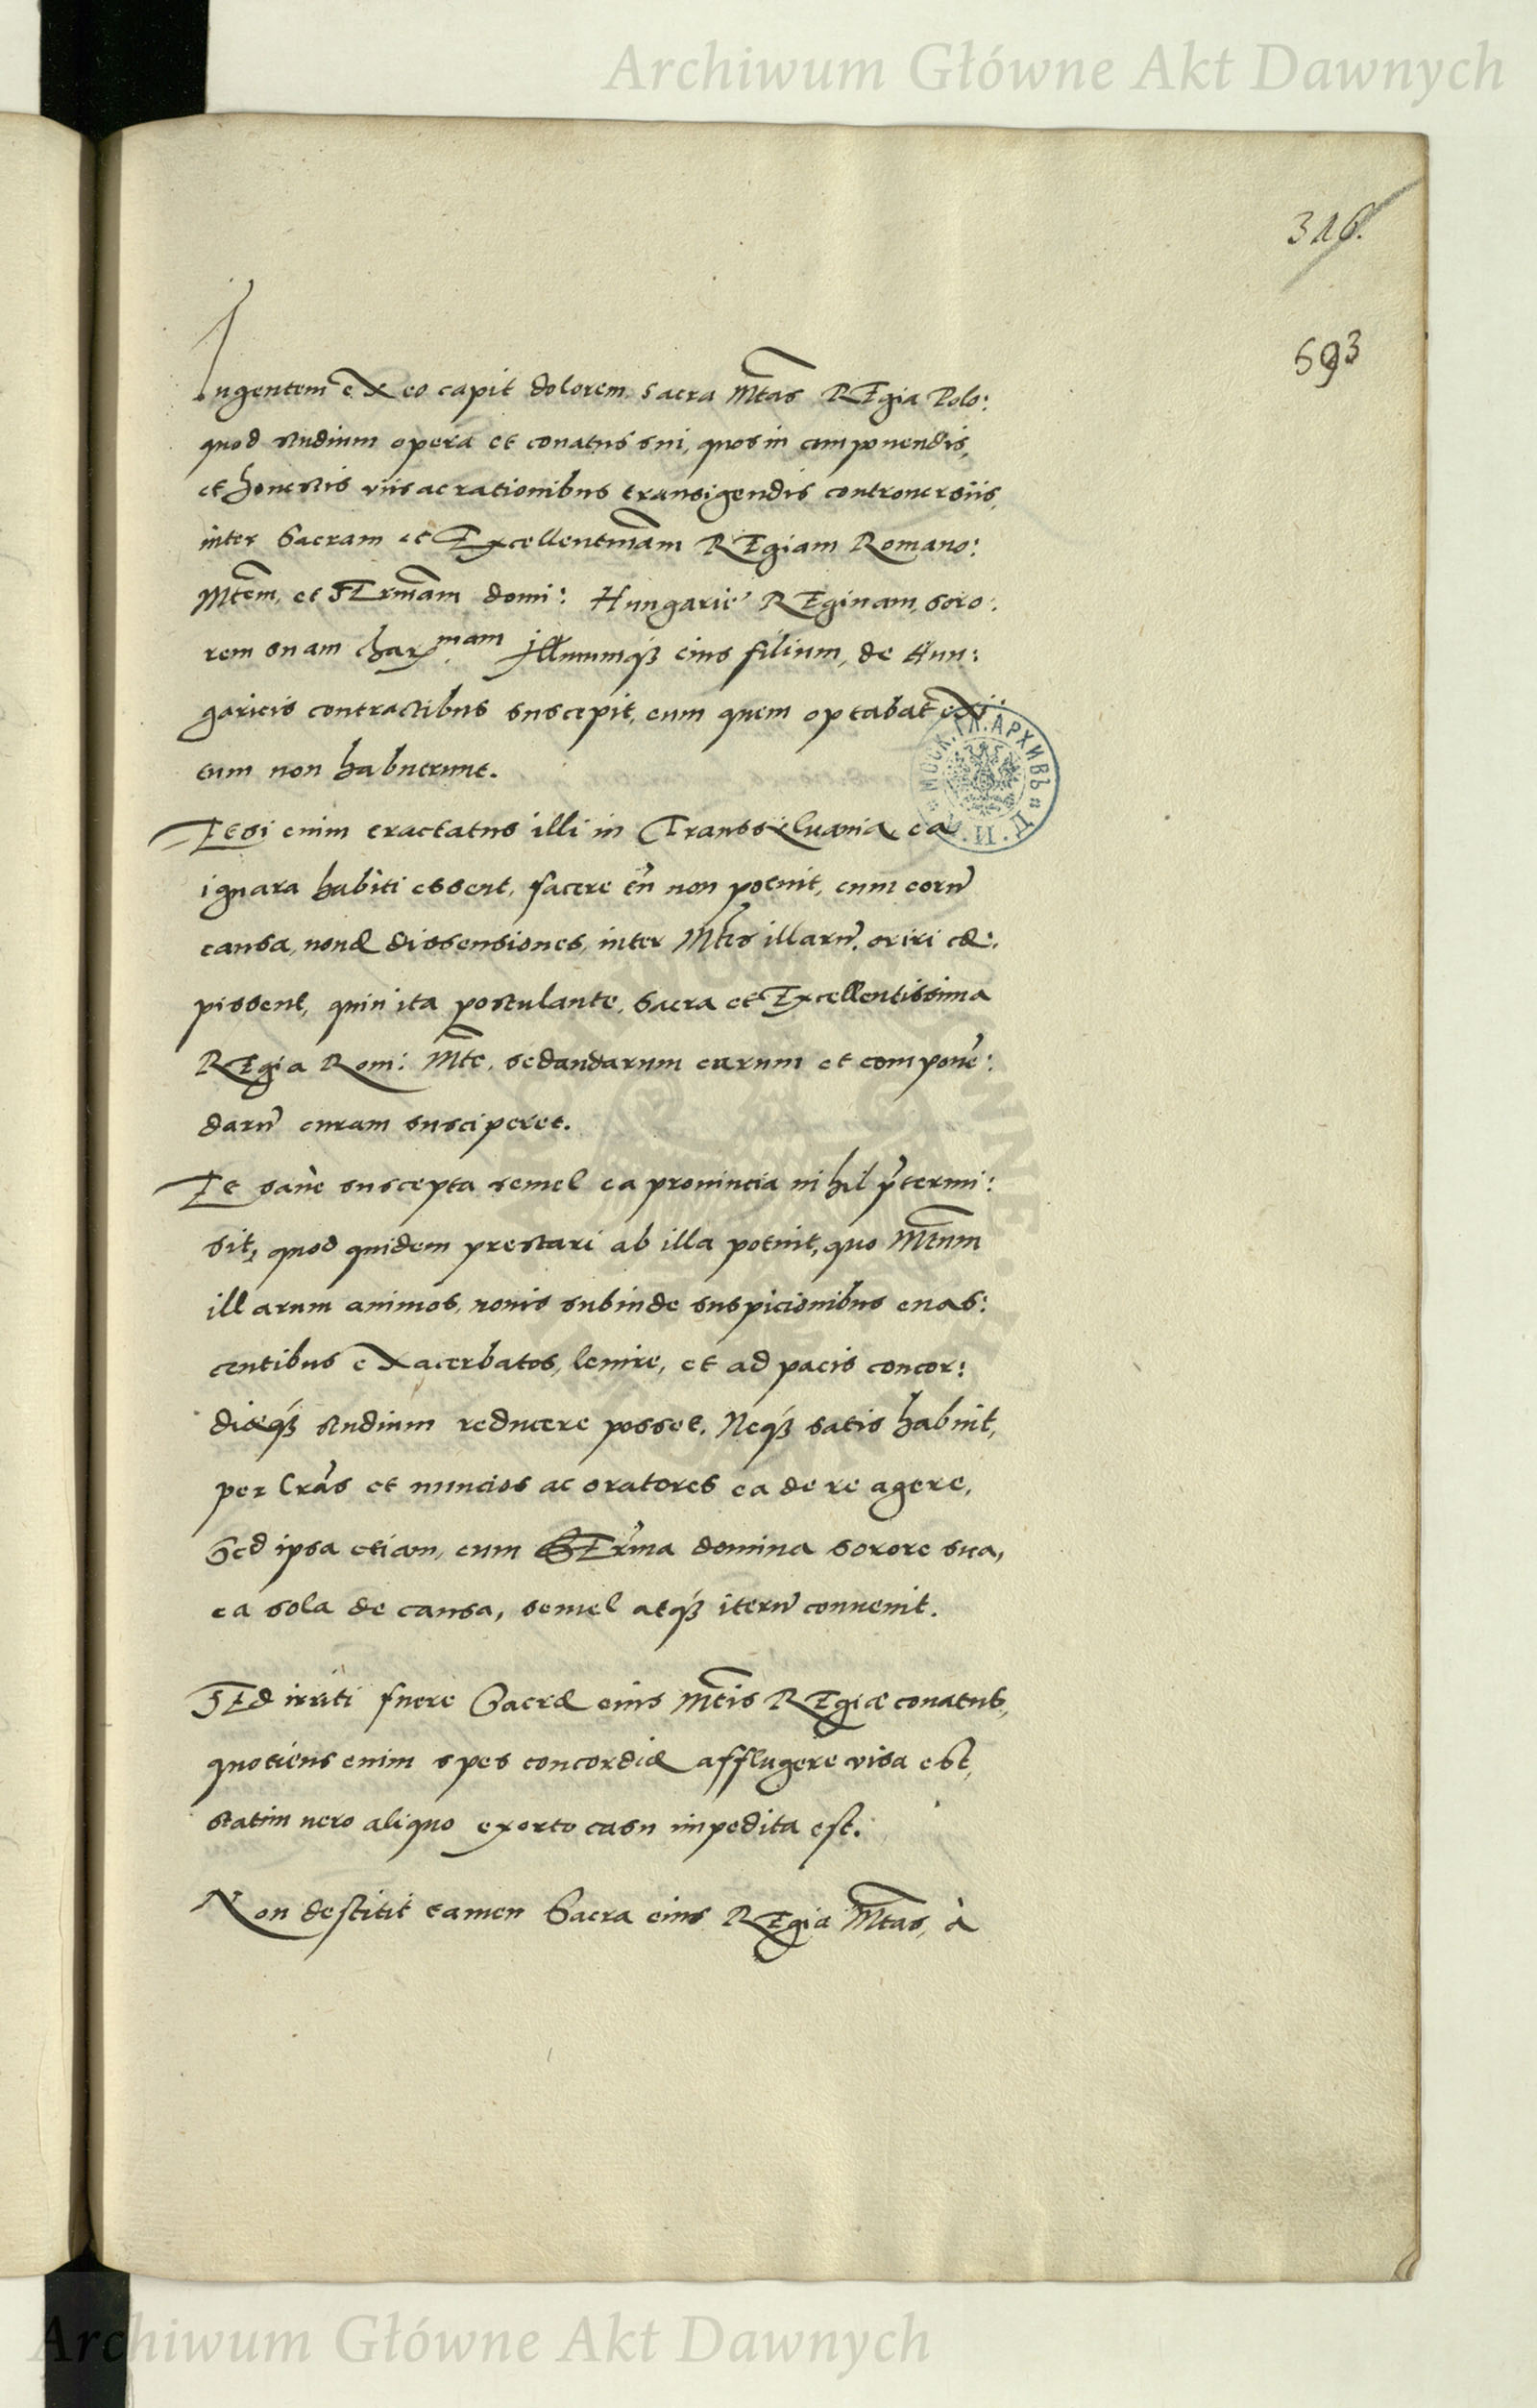 Archiwum Główne Akt Dawnych
316.
593
Ingentem ex eo capit dolorem sacra Mtas REgia Polo:
quod studium opera et conatus sui, quos in componendis,
et honestis viis ac rationibus transigendis controuersiis,
inter Sacram et Excellentmam REgiam Romano:
Mtem, et SErmam domi: Hungarie REginam, soro:
rem suam charmam Illmumq3 eius filium, de Hun:
garicis contractibus suscepit, eum quem optabat exi:
tum non habuerunt.
Etsi enim tractatus illi in Transsyluania, ea
ignara habiti essent, facere tn non potuit, cum eoru
causa, nouæ dissensiones, inter Mtes illaru, oriri cæ:
pissent, quin ita postulante, Sacra et Excellentissima
REgia Rom: Mte, sedandarum earum et compone:
daru curam susciperet.
Et sane suscepta semel ea prouincia nihil ptermi:
sit, quod quidem prestari ab illa potuit, quo Mtum
illarum animos, nouis subinde suspicionibus enas:
centibus exacerbatos, lenire, et ad pacis concor:
diæq3 studium reducere posset. Neq3 satis habuit,
per lras et nuncios ac oratores ea de re agere,
Sed ipsa etiam, cum SErma domina sorore sua,
ea sola de causa, semel atq3 iteru conuenit.
SEd irriti fuere Sacræ eius Mtis REgiæ conatus,
quotiens enim spes concordiæ affulgere visa est,
statim uero aliquo exorto casu impedita est.
Non destitit tamen Sacra eius REgia Mtas, à
МОСК. ГЛ. АРХИВЪ
Archiwum Główne Akt Dawnych